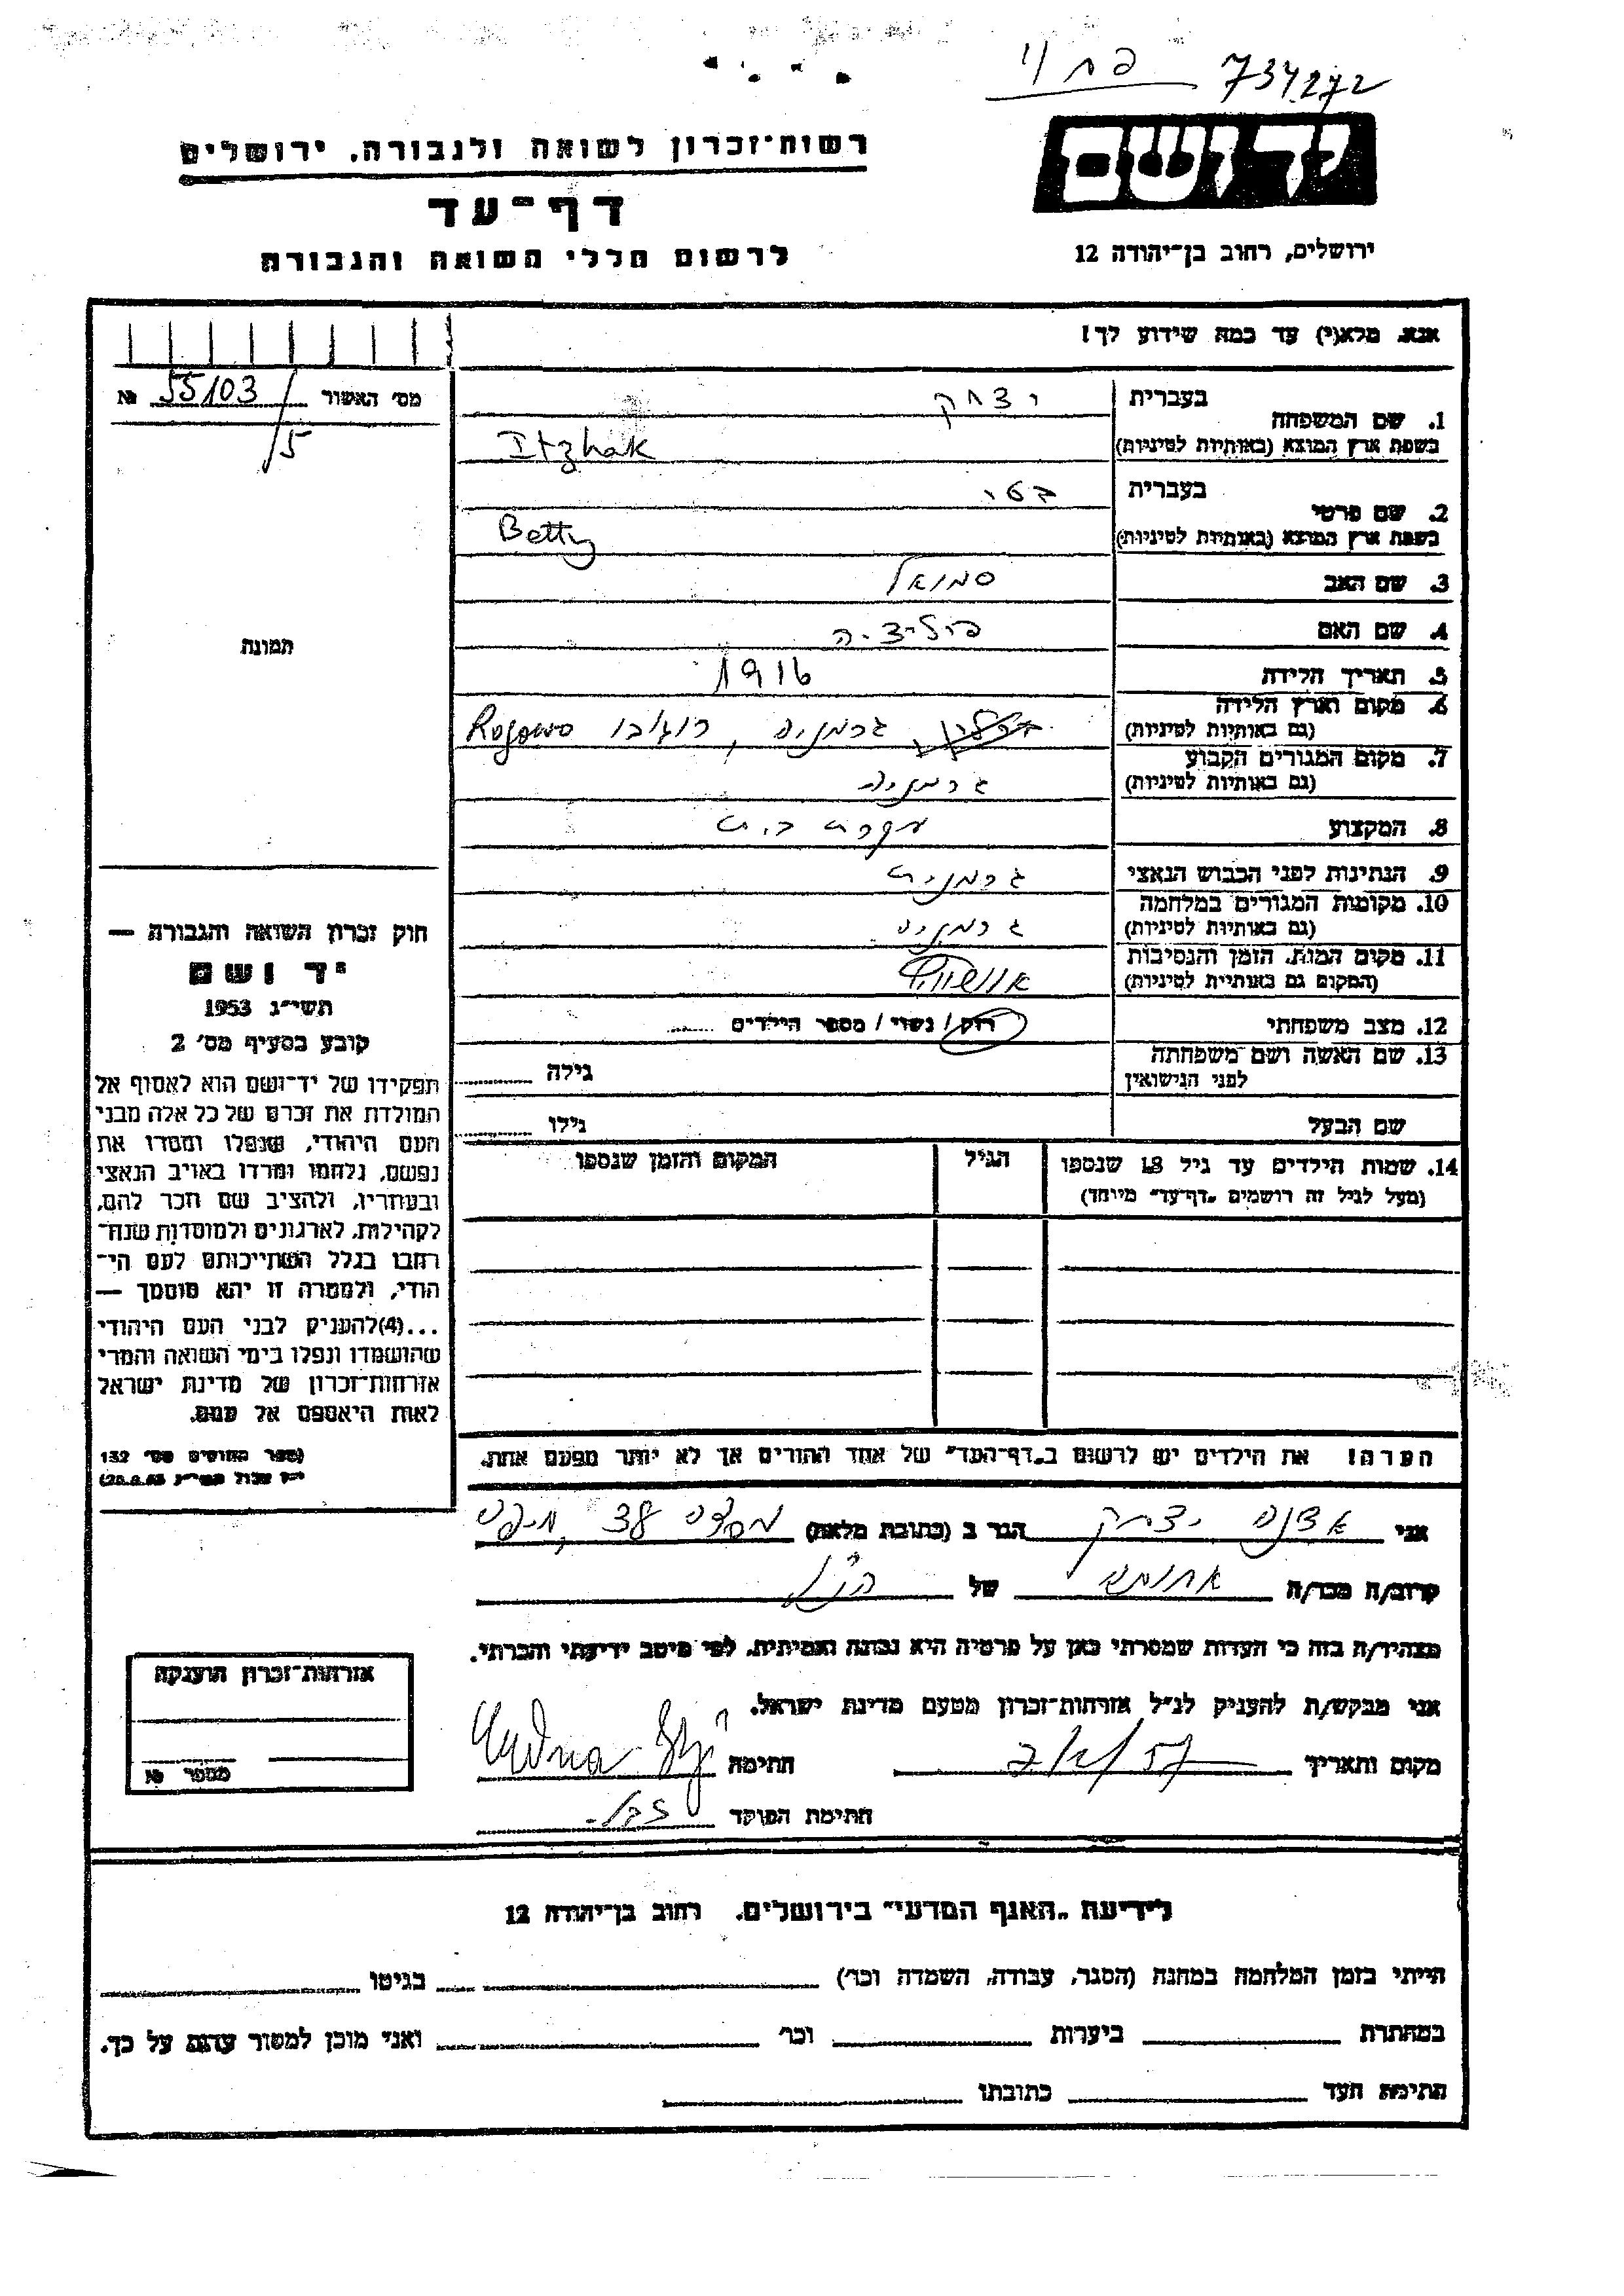 734272
יד ושם
רשות־זכרון לשואה ולגבורה, ירושלים
דף־עד
לרשום חללי השואה והגבורה
ירושלים, רחוב בן־יהודה 12
אנא, מלא(י) עד כמה שידוע לך!
מס' האשור 55103/15 №
1. שם המשפחה
בעברית יצחק
בשפת ארץ המוצא (באותיות לטיניות) Itzhak
2. שם פרטי
בעברית בטי
בשפת ארץ המוצא (באותיות לטיניות) Betty
3. שם האב סמואל
4. שם האם פוליצ׳ה
5. תאריך הלידה 1916
6. מקום וארץ הלידה גרמניה, רוגובו Rogowo
(גם באותיות לטיניות)
7. מקום המגורים הקבוע גרמניה
(גם באותיות לטיניות)
8. המקצוע עקרת בית
9. הנתינות לפני הכבוש הנאצי גרמנית
10. מקומות המגורים במלחמה גרמניה
(גם באותיות לטיניות)
11. מקום המות, הזמן והנסיבות אושוויץ
(המקום גם באותיות לטיניות)
12. מצב משפחתי רווק / נשוי / מספר הילדים ......
13. שם האשה ושם משפחתה
לפני הנישואין
גילה
שם הבעל גילו
14. שמות הילדים עד גיל 18 שנספו הגיל המקום והזמן שנספו
(מעל לגיל זה רושמים „דף־עד" מיוחד)
הערה! את הילדים יש לרשום ב„דף־העד" של אחד ההורים אך לא יותר מפעם אחת.
תמונה
חוק זכרון השואה והגבורה —
יד ושם
תשי״ג 1953
קובע בסעיף מס' 2
תפקידו של יד־ושם הוא לאסוף אל
המולדת את זכרם של כל אלה מבני
העם היהודי, שנפלו ומסרו את
נפשם, נלחמו ומרדו באויב הנאצי
ובעוזריו, ולהציב שם וזכר להם,
לקהילות, לארגונים ולמוסדות שנח־
רבו בגלל השתייכותם לעם הי־
הודי, ולמטרה זו יהא מוסמך —
...(4) להעניק לבני העם היהודי
שהושמדו ונפלו בימי השואה והמרי
אזרחות־זכרון של מדינת ישראל
לאות היאספם אל עמם.
(ספר החוקים מס' 132
אני יצחק הגר ב (כתובת מלאה) 38
קרוב/ה מכר/ה של הנ״ל
מצהיר/ה בזה כי העדות שמסרתי כאן על פרטיה היא נכונה ואמיתית, לפי מיטב ידיעתי והכרתי.
אני מבקש/ת להעניק לנ״ל אזרחות־זכרון מטעם מדינת ישראל.
מקום ותאריך חתימה
חתימת הפוקד
אזרחות־זכרון הוענקה
מספר №
לידיעת „האגף המדעי" בירושלים, רחוב בן־יהודה 12
הייתי בזמן המלחמה במחנה (הסגר, עבודה, השמדה וכו') בגיטו
במחתרת ביערות וכו' ואני מוכן למסור עדות על כך.
חתימת העד כתובתו